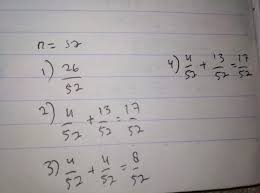 n = 52
1) 26/52
2) 4/52 + 13/52 = 17/52
3) 4/52 + 4/52 = 8/52
4) 4/52 + 13/52 = 17/52